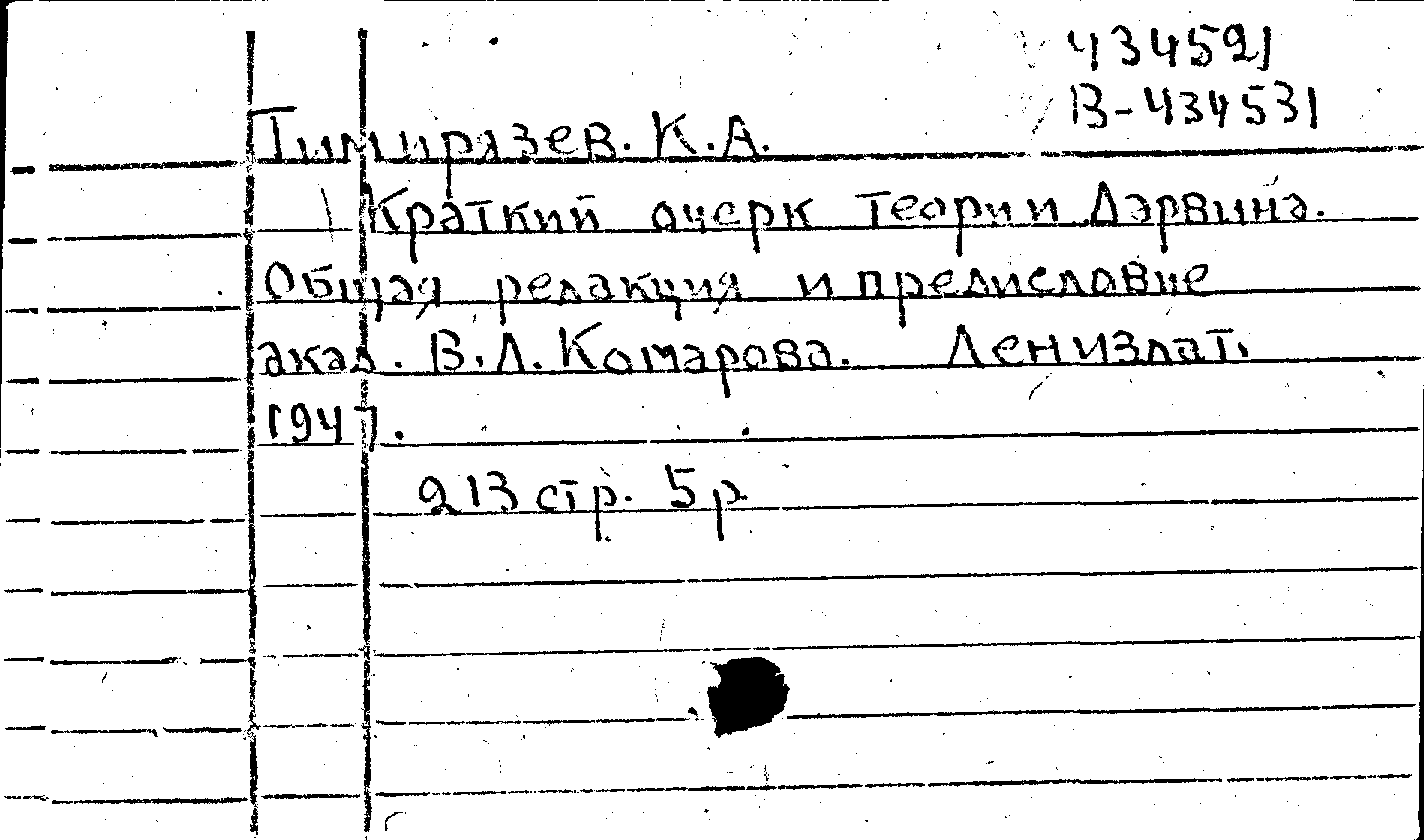 434521
В-434531
Тимирязев. К.А.
Краткий очерк теории Дарвина.
Общая редакция и предисловие
акад. В.Л. Комарова. Лениздат.
1947.
213 стр. 5 р.